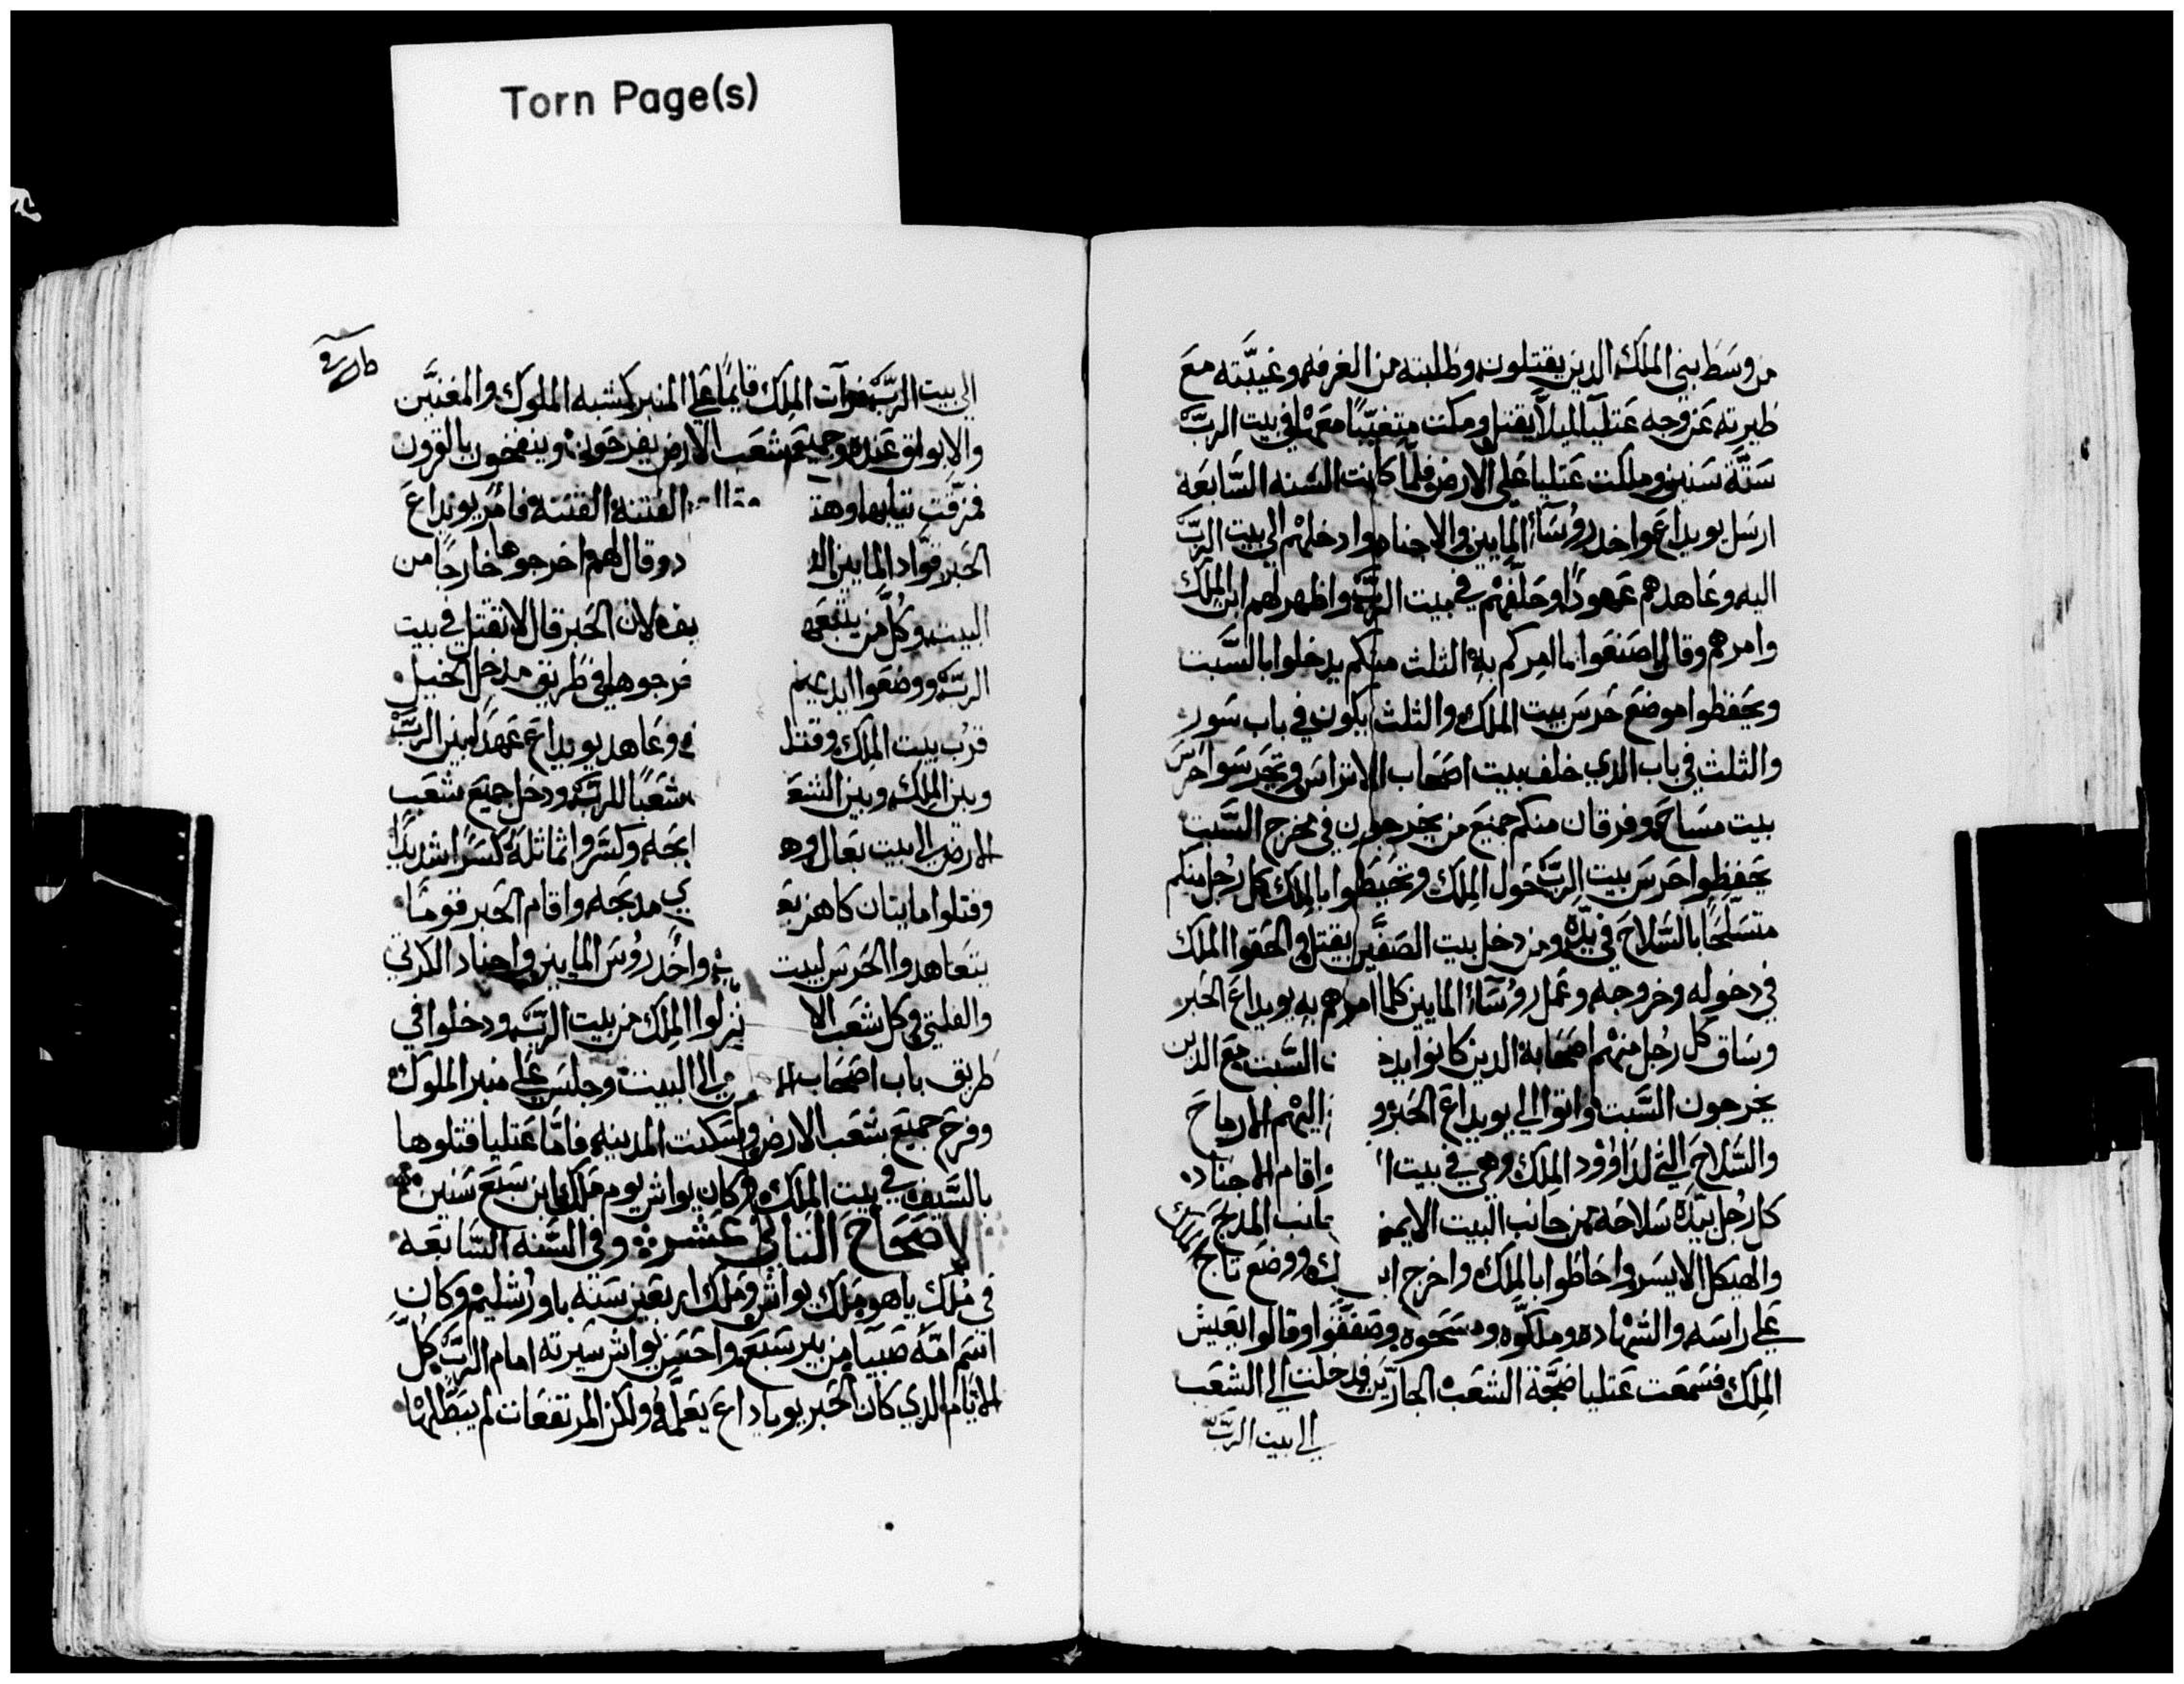 Torn Page(s)
من وسط بني الملك الدين يقتلون وطلبته من الغرفه وغيبَّته معَ
ظيرته عَن وجه عَتليا ليلا يقتل ومكت متغيّبًا معَهْا في بيت الربّ
سَتَّة سَنين وملكت عَتليا عَلي الارض فلمَّا كانت السَّنه السَّابعَه
ارسَل يويداعَ واخد روُسَآء المايين والاجناد وادخلهْم الي بيت الربّ
اليه وعَاهدهم عَهودًا وحَلَّفهْم في بيت الربّ واظهر لهم ابن الملك
وامرهم وقال اصَنعَوا ما امركم به الثلث منكم يدخلوا بالسَّبت
ويحَفظوا موضعَ حَرسَ بيت الملك والثلث يكون في باب سَور
والثلث في باب الدي خلف بيت اصَحَاب الاتراسَ وتحَرسَوا حَرسَ
بيت مسَاحَ وفرقان منكم جميعَ من يخرجون في مخرج السَّبت
يحَفظوا حَرسَ بيت الربّ حَول الملك وتحَيطوا بالملك كل رجل منكم
متسَلّحًَا بالسَّلاحَ في يدّه ومن دخل بيت الصَفَّين يقتل والحَقوا الملك
في دخوله وخروجه وعَمل روُسَآء المايين كلما امرهم به يويداعَ الحَبر
وسَاق كل رجُل منهْم اصَحَابه الدين كانوا يد السَّبت معَ الدين
يخرجون السَّبت واتوا الي يويداعَ الحَبر و اليهْم الارماحَ
والسَّلاحَ التي لداوُود الملك وهي في بيت ا واقام الاجناد
كل رجُل بيدّه سَلاحَه من جانب البيت الايمن جانب المدبحَ
والهيكل الايسَر واحَاطوا بالملك واخرج اب ووضعَ تاج الملك
عَلي راسَه والشهْاده وملكّوه ومسَحَوه وصَفقَّوا وقالوا يعَيش
الملك فسَمعَت عَتليا ضجَّة الشعَب الجاريَّن فدخلت الي الشعَب
الي بيت الربّ
الي بيت الربّ فرآت الملك قايمًا عَلي المنبر كمشبه الملوك والمغنيَّن
والابواق عَنده وجميعَ شعَب الارض يفرحَون وينفخون بالقرون
فمزقّت تيابها وهت الفتنة الفتنة فامر يويداعَ
الحَبر قوّاد المايين ال د وقال لهم اخرجوها خارجًا من
البيت وكل من يتبعَها يف لان الحَبر قال لا تقتل في بيت
الربّ ووضعَوا ايديهم فرجوها في طريق مدخل الخيل
قرب بيت الملك وقتل وعَاهد يويداعَ عَهدًا بين الربّ
وبين الملك وبين الشعَ شعَبًا للربّ ودخل جميعَ شعَب
الارض الي بيت بعَال وه ابحَه وكسَروا تماتله كسَرًا شديدًا
وقتلوا مايتان كاهن بعَ مدبحَه واقام الحَبر قومًا
يتعَاهدوا الحَرسَ لبيت واخد روُسَ المايين واجناد الكرتي
والفلتي وكل شعَب الا نزلوا الملك من بيت الربّ ودخلوا في
طريق باب اصَحَاب ال الي البيت وجلسَ عَلي منبر الملوك
وفرحَ جميعَ شعَب الارض وسَكنت المدينه فامّا عَتليا قتلوها
بالسَّيف في بيت الملك وكان يواش يوم ملك ابن سَبعَ سَنين
الاصَحَاحَ التاني عَشر وفي السَّنه السَّابعَه
في مُلك ياهو ملك يواش وملك اربعَين سَنه باورُشليمْ وكان
اسَم امّه صَبيا من بير سَبعَ واحَسَن يواش سَيرته امام الربّ كل
الايّام الدي كان الحَبر يوياداعَ يعَلمّه ولكن المرتفعَات لم يبَطّلهْا